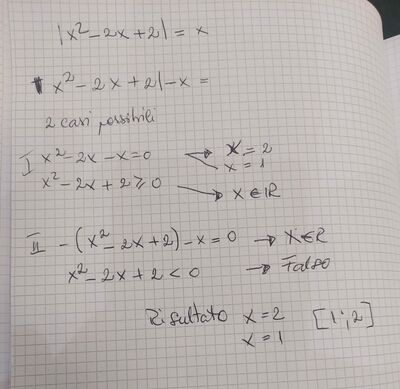 |x² - 2x + 2| = x
x² - 2x + 2| - x =
2 casi possibili
I x² - 2x - x = 0 → x = 2
x = 1
x² - 2x + 2 ≥ 0 → x ∈ ℝ
II - (x² - 2x + 2) - x = 0 → x ∈ R
x² - 2x + 2 < 0 → Falso
Risultato x = 2 [1; 2]
x = 1